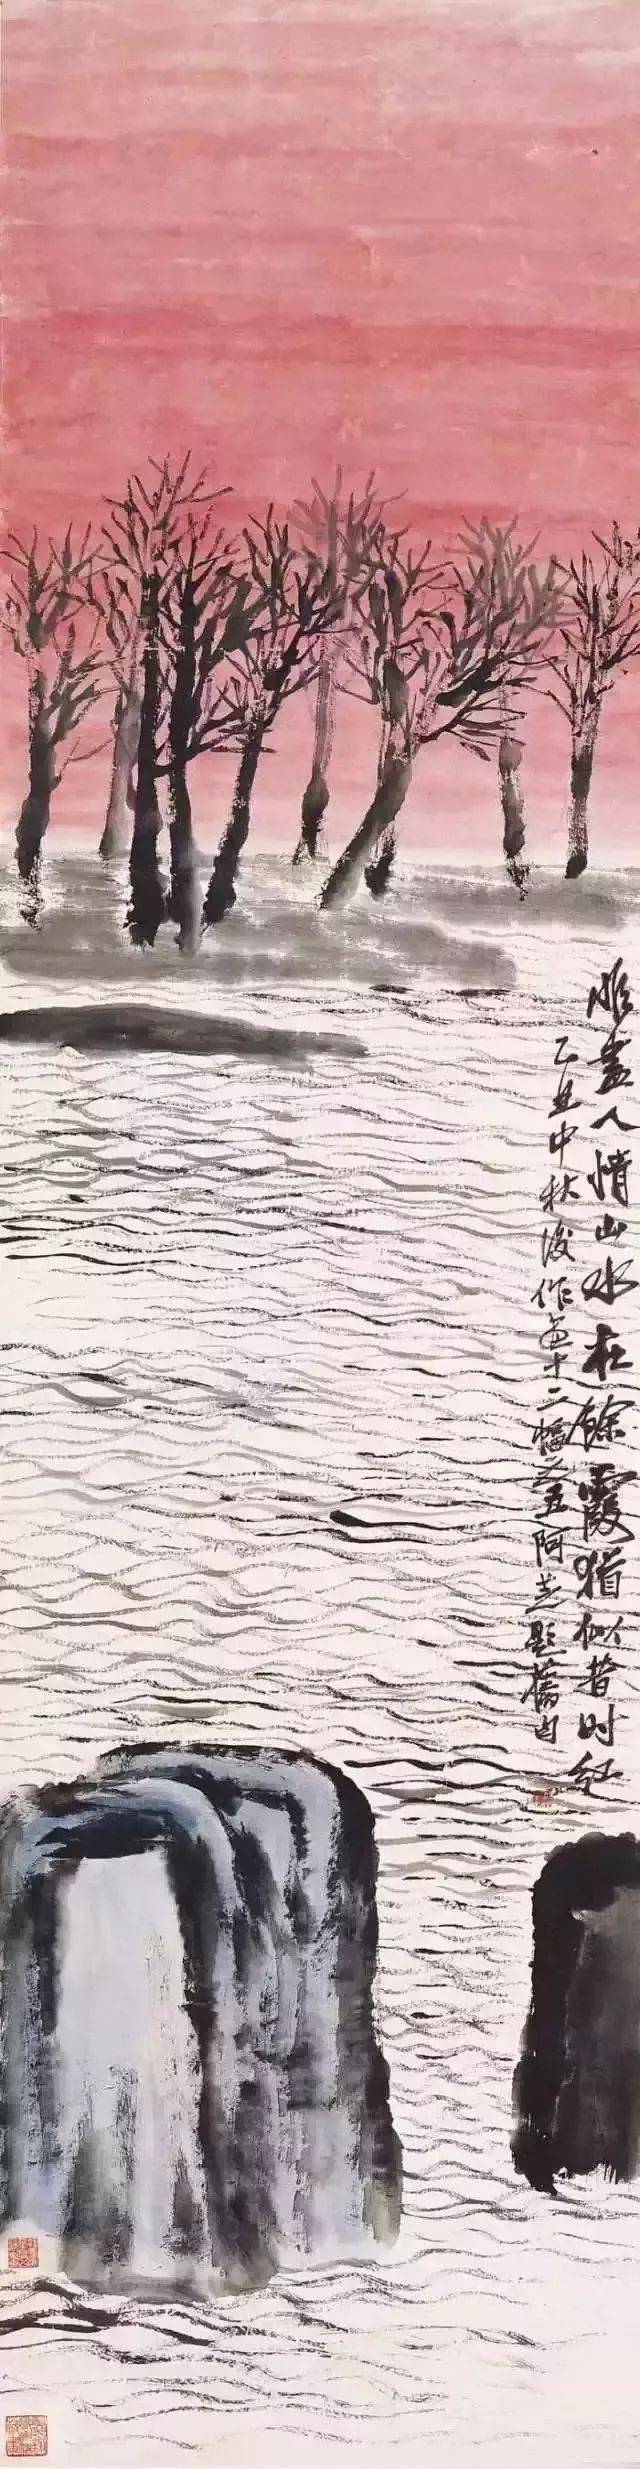 畫人情山水在餘霞猶似昔时紅
乙丑中秋後作画十二幅之五阿芝題舊句